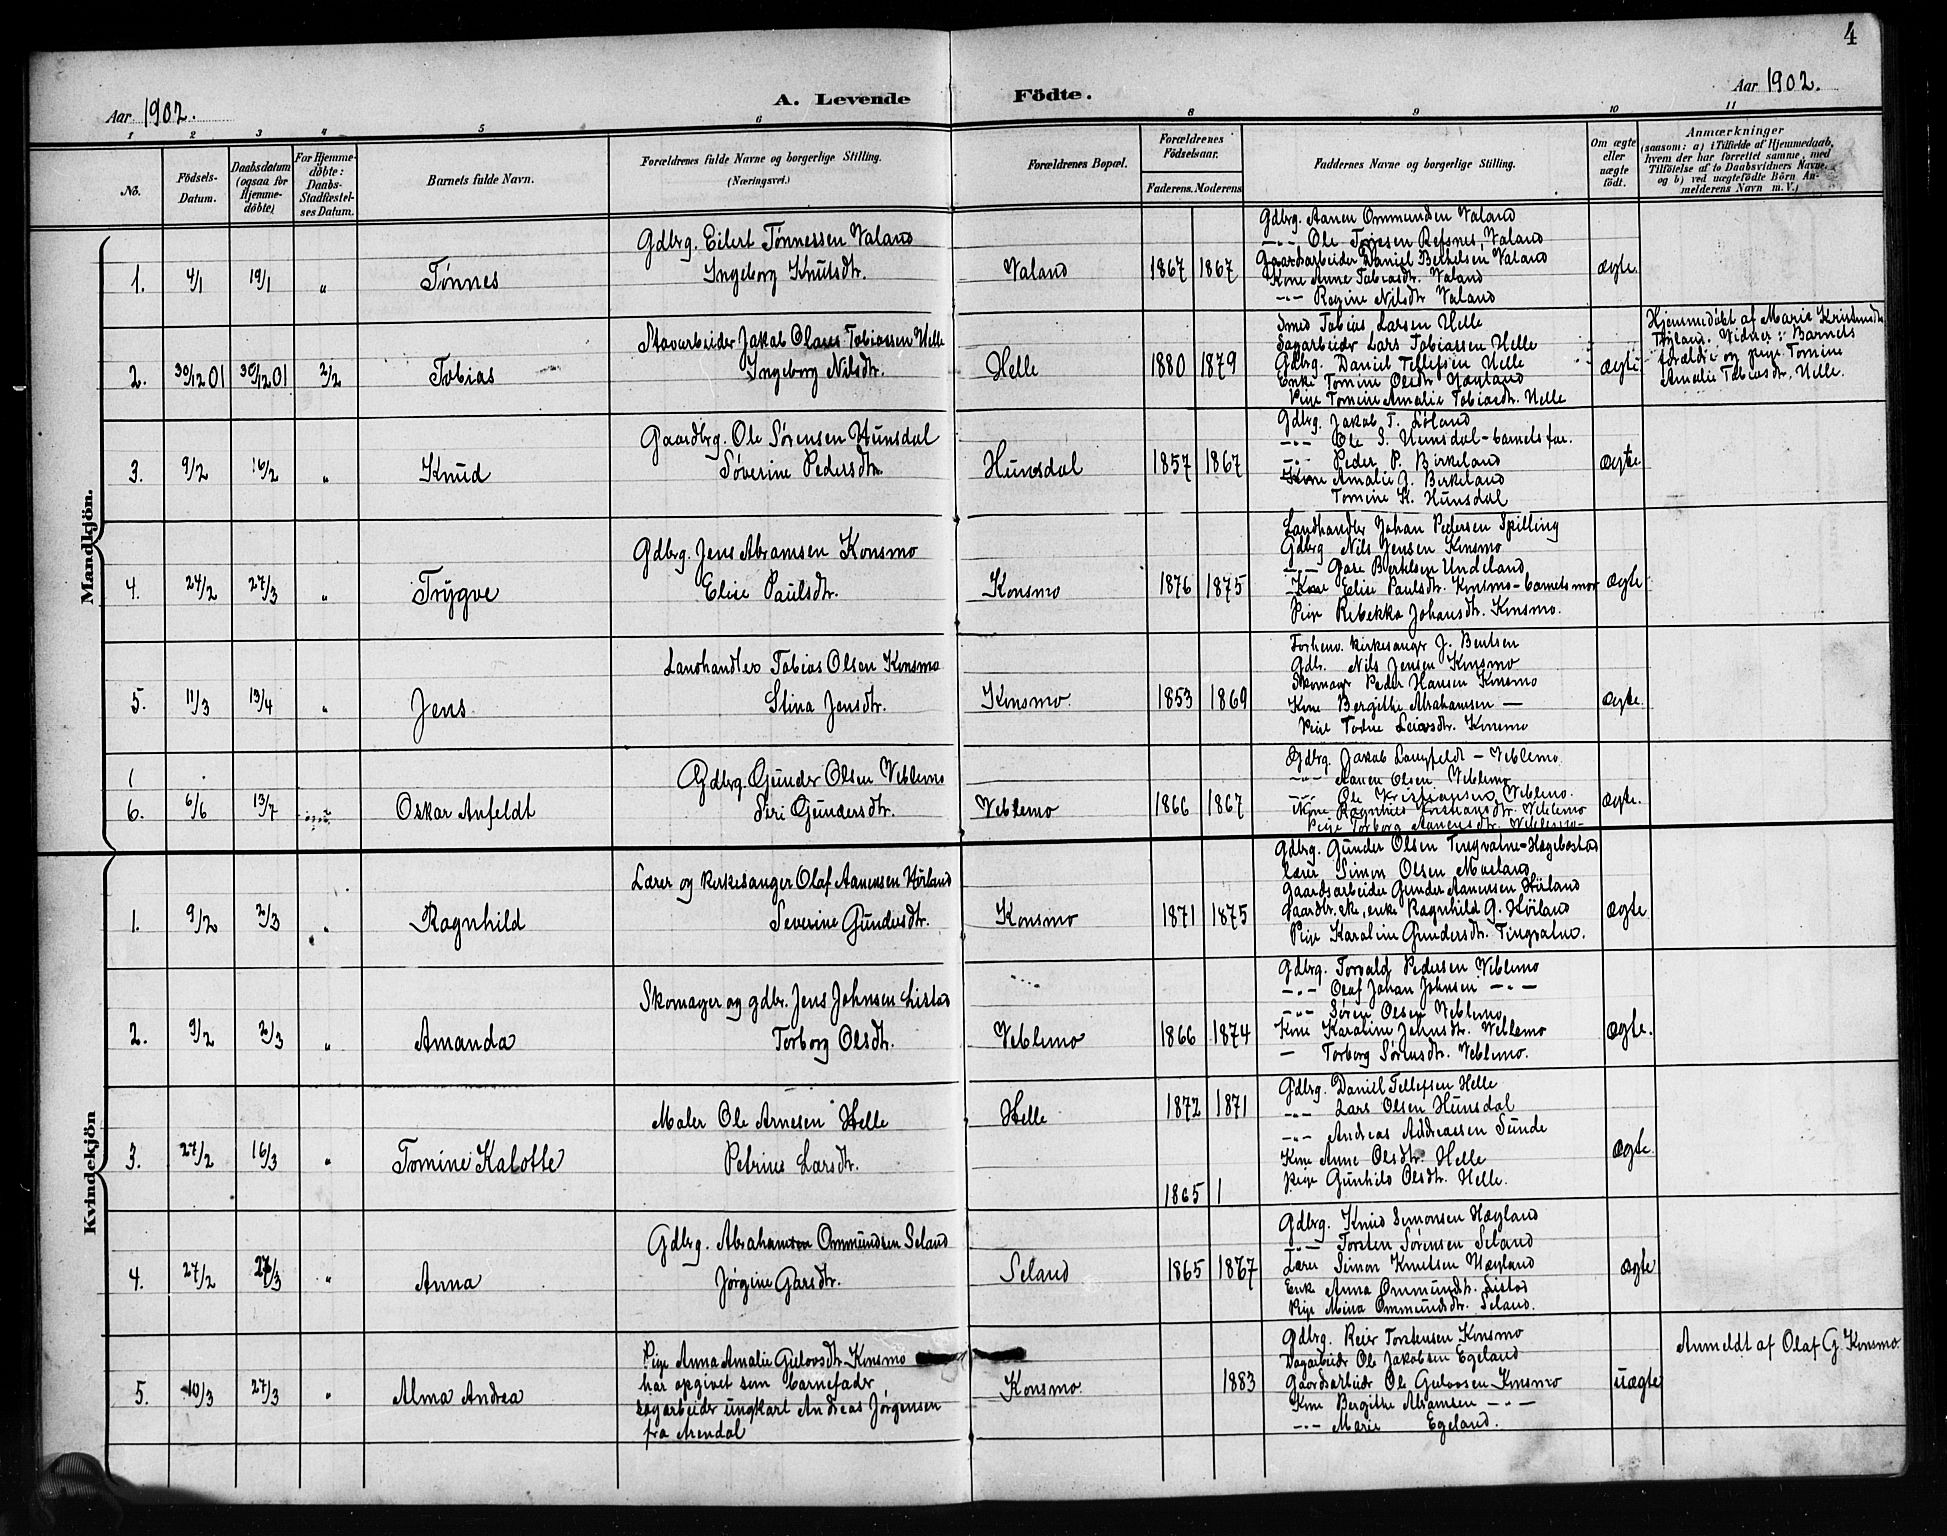 4
Aar 1902.
A. Levende Födte.
Aar 1902.
1 2 3 4 5 6 8 9 10 11
No.
Födsels-Datum.
Daabsdatum (ogsaa for Hjemme-döbte)
For Hjemme-döbte: Daabs-Stadfæstel-ses Datum.
Barnets fulde Navn.
Forældrenes fulde Navne og borgerlige Stilling. (Næringsvei.)
Forældrenes Bopæl.
Forældrenes Födselsaar.
Faderens. Moderens.
Faddernes Navne og borgerlige Stilling.
Om ægte eller uægte födt.
Anmærkninger
(saasom: a) i Tilfælde af Hjemmedaab, hvem der har forrettet samme, med Tilföielse af to Daabsvidners Navne, og b) ved uægtefödte Börn An-melderens Navn m. V.)
Mandkjön.
Gdbrg. Eilert Tønnessen Valand
Ingeborg Knutsdtr.
1. 4/1 19/1 " Tønnes Valand 1867 1867 ægte.
Gdbrg. Aanen Ommundsen Valand
-"- Ole Tørresen Refsnes, Valand
Gaardarbeider Daniel Bertelsen Valand
Kone Anne Tobiasdtr. Valand
-"- Regine Nilsdtr Valand
Stavarbeider Jakob Olaus Tobiassen Helle
Ingeborg Nilsdtr.
2. 30/12 01 30/12 01 2/2 Tobias Helle 1880 1879 ægte
Smed Tobias Larsen Helle
Sagarbeider Lars Tobiassen Helle
Gdbrg. Daniel Tellefsen Helle
Enke Tomine Olsdtr Hægland
Pige Tomine Amalie Tobiasdtr. Helle
Hjemmedøbt af Marie Kristensdtr
Vidner: Barnets
forældre og pige Tomine
Amalie Tobiasdtr. Helle.
Gaardbrg. Ole Sørensen Hunsdal
Søverine Pedersdtr.
3. 9/2 16/2 " Knud Hunsdal 1857 1867 ægte
Gdbrg. Jakob T. Løland
-"- Ole S. Hunsdal - barnets far.
-"- Peder P. Birkeland
Kone Amalie G. Birkeland
Tomine K. Hunsdal
Gdbrg. Jens Abramsen Konsmo
Elise Paulsdtr.
4. 24/2 27/3 " Trygve Konsmo 1876 1875 ægte
Landhandler Johan Pedersen Spilling
Gdbrg Nils Jensen Konsmo
-"- Gare Bertelsen Undeland
Kone Elise Paulsdtr. Konsmo - barnets mor
Pige Rebekka Johansdtr. Konsmo.
Landhandler Tobias Olsen Konsmo
Stina Jensdtr.
5. 11/3 13/4 " Jens Konsmo. 1853 1869 ægte.
Forhenv. kirkesanger J. Bentsen
Gdb. Nils Jensen Konsmo
Skomager Peder Hansen Konsmo
Kone Bergithe Abrahamsen -
Pige Todne Leivsdtr. Konsmo
Gdbrg. Gunder Olsen Veblemo
Siri Gundersdtr.
6. 6/6 13/7 Oskar Anfeldt Veblemo 1866 1867 ægte.
Gdbrg. Jakob Langfeldt - Veblemo.
-"- Aanen Olsen Veblemo
-"- Ole Kristiansen Veblemo.
Kone Ragnhild Kristiansdtr. Veblemo
Pige Torborg Aanensdtr. Veblemo -
Kvindekjön
Lærer og kirkesanger Olaf Aanensen Høiland
Severine Gundersdtr.
1. 9/2 2/3 " Ragnhild Konsmo 1871 1875 ægte
Gdbrg. Gunder Olsen Tingvatne - Hægebostad
Lærer Simon Olsen Moeland
Gaardsarbeider Gunder Aanensen Høiland
Gaardbr.ske, enke Ragnhild G. Høiland
Pige Karoline Gundersdtr. Tingvatne.
Skomager og gdbr. Jens Johnsen Listad
Torborg Olsdtr.
2. 9/2 2/3 " Amanda Veblemo 1866 1874 ægte.
Gdbrg. Torvald Pedersen Veblemo
-"- Olaf Johan Johnsen -"-
-"- Søren Olsen Veblemo
Kone Karoline Johnsdtr. Veblemo
- Torborg Sørensdtr. Veblemo.
Maler Ole Arnesen Helle
Petrine Larsdtr.
3. 27/2 16/3 " Tomine Kalotte Helle 1872 1871 ægte.
1865 1
Gdbrg. Daniel Tellefsen Helle
-"- Lars Olsen Hunsdal
-"- Andreas Andreassen Sunde
Kone Anne Olsdtr. Helle
Pige Gunhild Olsdtr. Helle.
Gdbrg. Abraham Ommundsen Seland
Jørgine Garsdtr.
4. 27/2 27/3 " Anna Seland 1865 1867 ægte
Gdbrg. Knud Simonsen Hægland
-"- Torsten Sørensen Seland
Lærer Simon Knutsen Hægland
Enke Anna Ommundsdtr. Listad
Pige Mina Ommundsdtr. Seland.
Pige Anna Amalie Gulovsdtr Konsmo
har opgivet som barnefader
sagarbeider ungkarl Andreas Jørgensen
fra Arendal
5. 10/3 27/3 " Alma Andrea Konsmo. 1883 uægte
Gdbrg. Reier Torstensen Konsmo
Dagarbeider Ole Jakobsen Egeland
Gaardsarbeider Ole Gulovsen Konsmo
Kone Bergithe Abramsen -"-
-"- Marie Egeland.
Anmeldt af Olaf G. Konsmo.